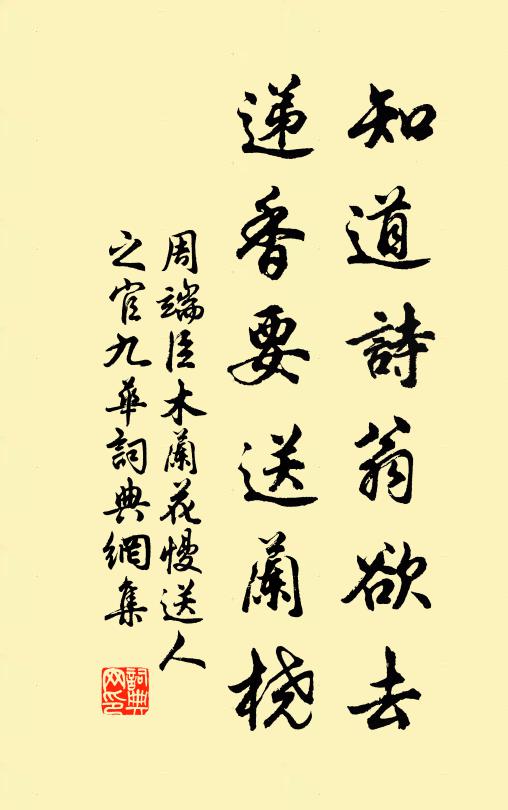 知道詩翁欲去
遞香要送蘭橈
周端臣木蘭花慢送人
之官九華詞典網集
詞典
网印